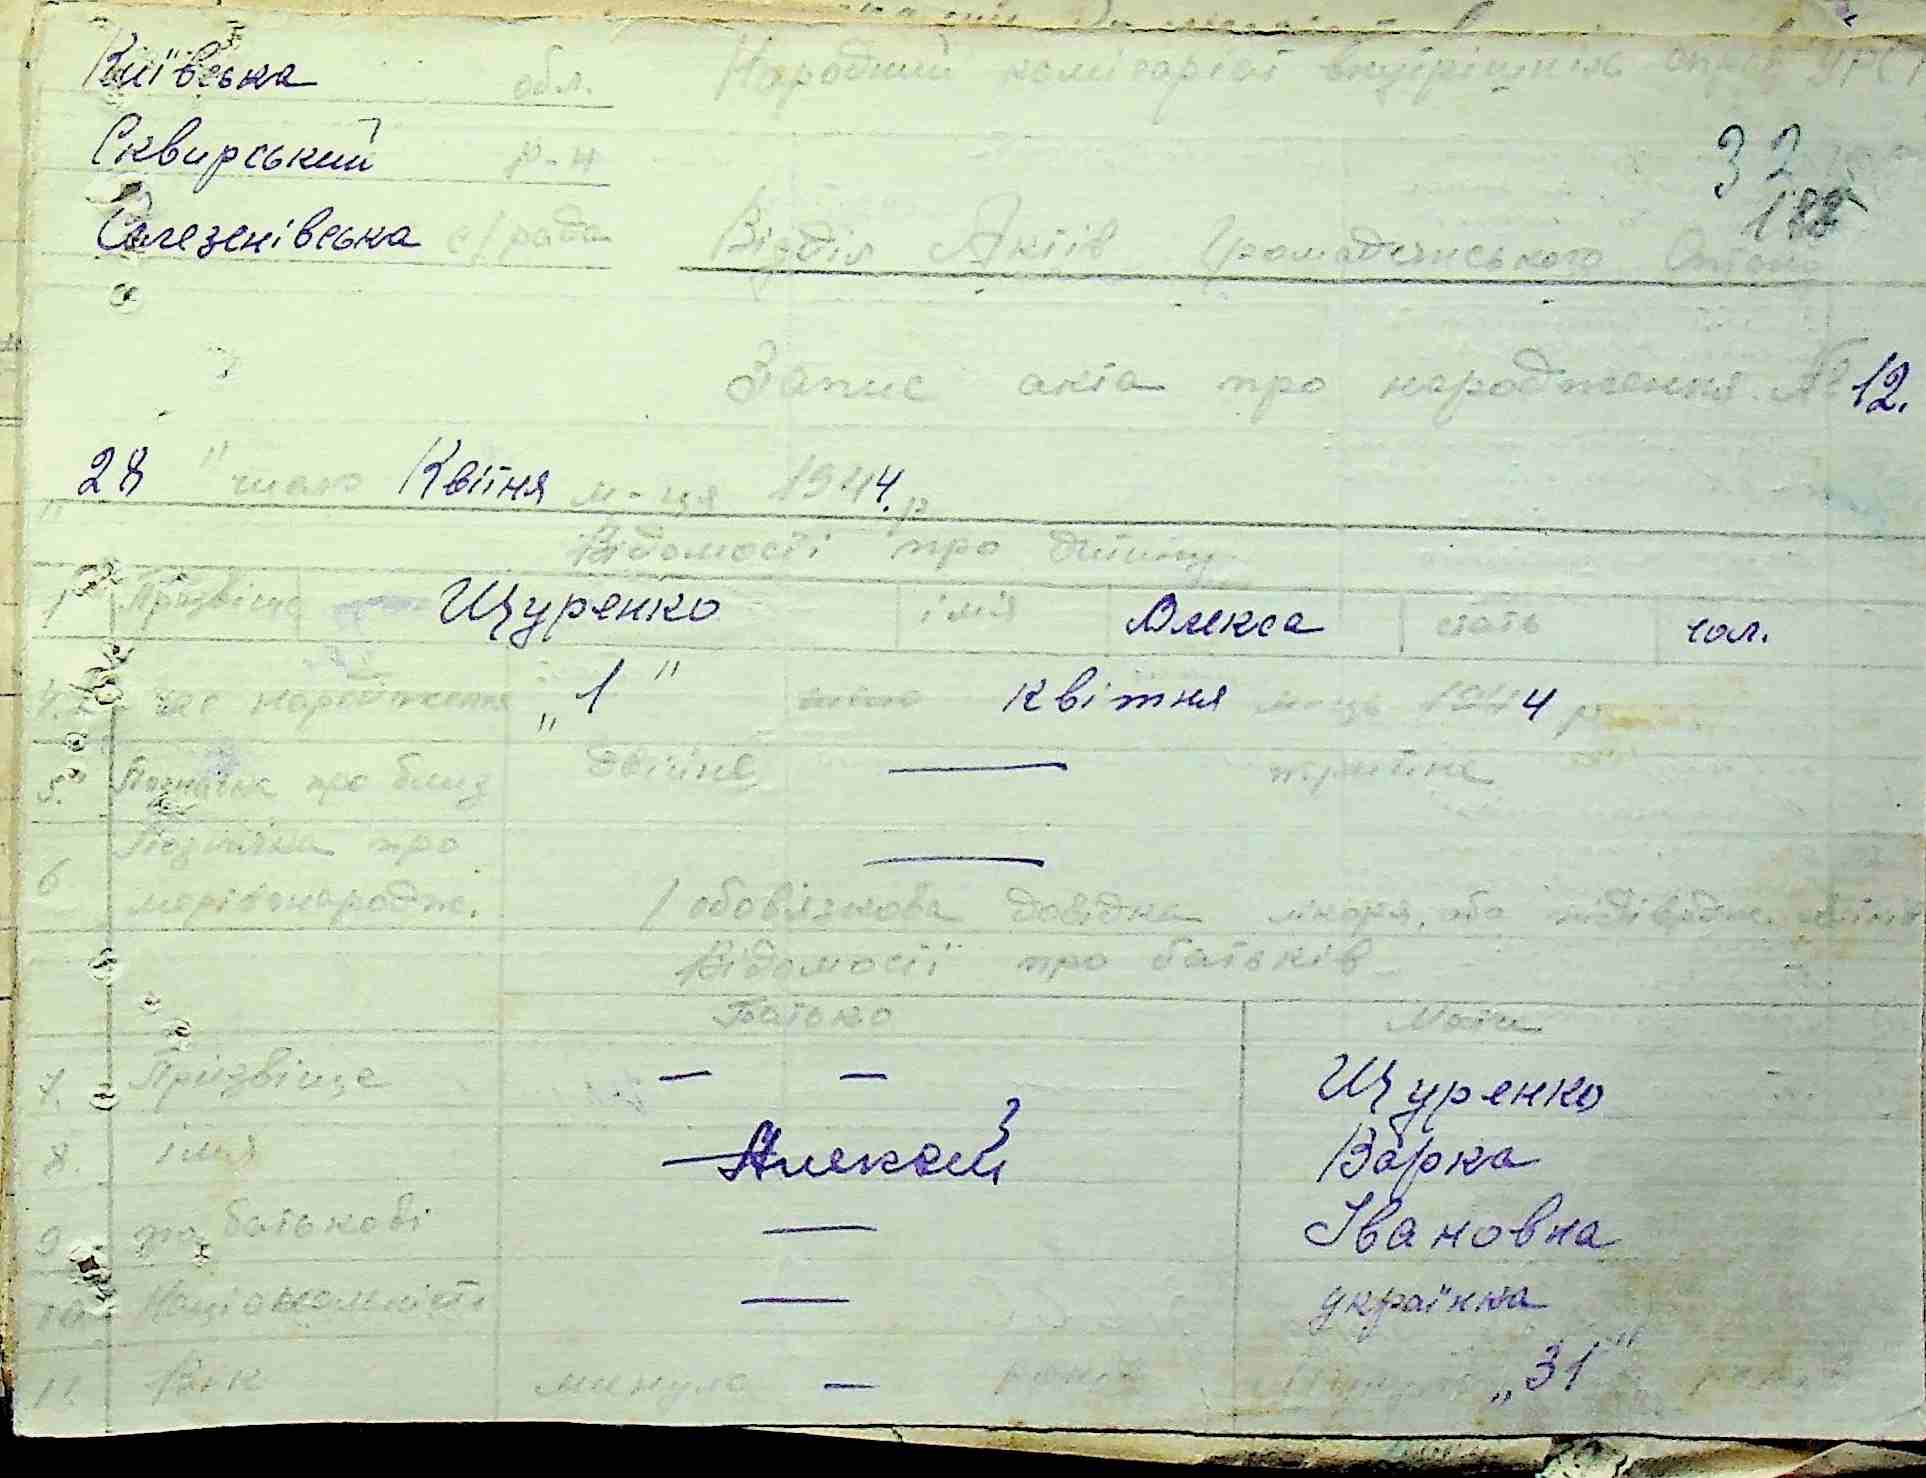 Київська обл. Народний комісаріат внутрішніх справ УРСР
Сквирський р-н 32
188
Селезенівська с/рада Відділ Актів Громадянського Стану
Запис акта про народження № 12.
" 28 " число Квітня м-ця 1944 р
Відомості про дитину
1 Прізвище Щуренко ім'я Олекса стать чол.
4. час народження „ 1 " число квітня м-ць 1944 р
5. Позначка про близ двійне — трийне
6 Позначка про —
мертвонародж. / обов'язкова довідка лікаря, або
Відомості про батьків
Батько Мати
7. Прізвище — — Щуренко
8. ім'я — Алексей Варка
9. по батькові — Івановна
10. Національність — українка
11. Вік минуло — років „31"